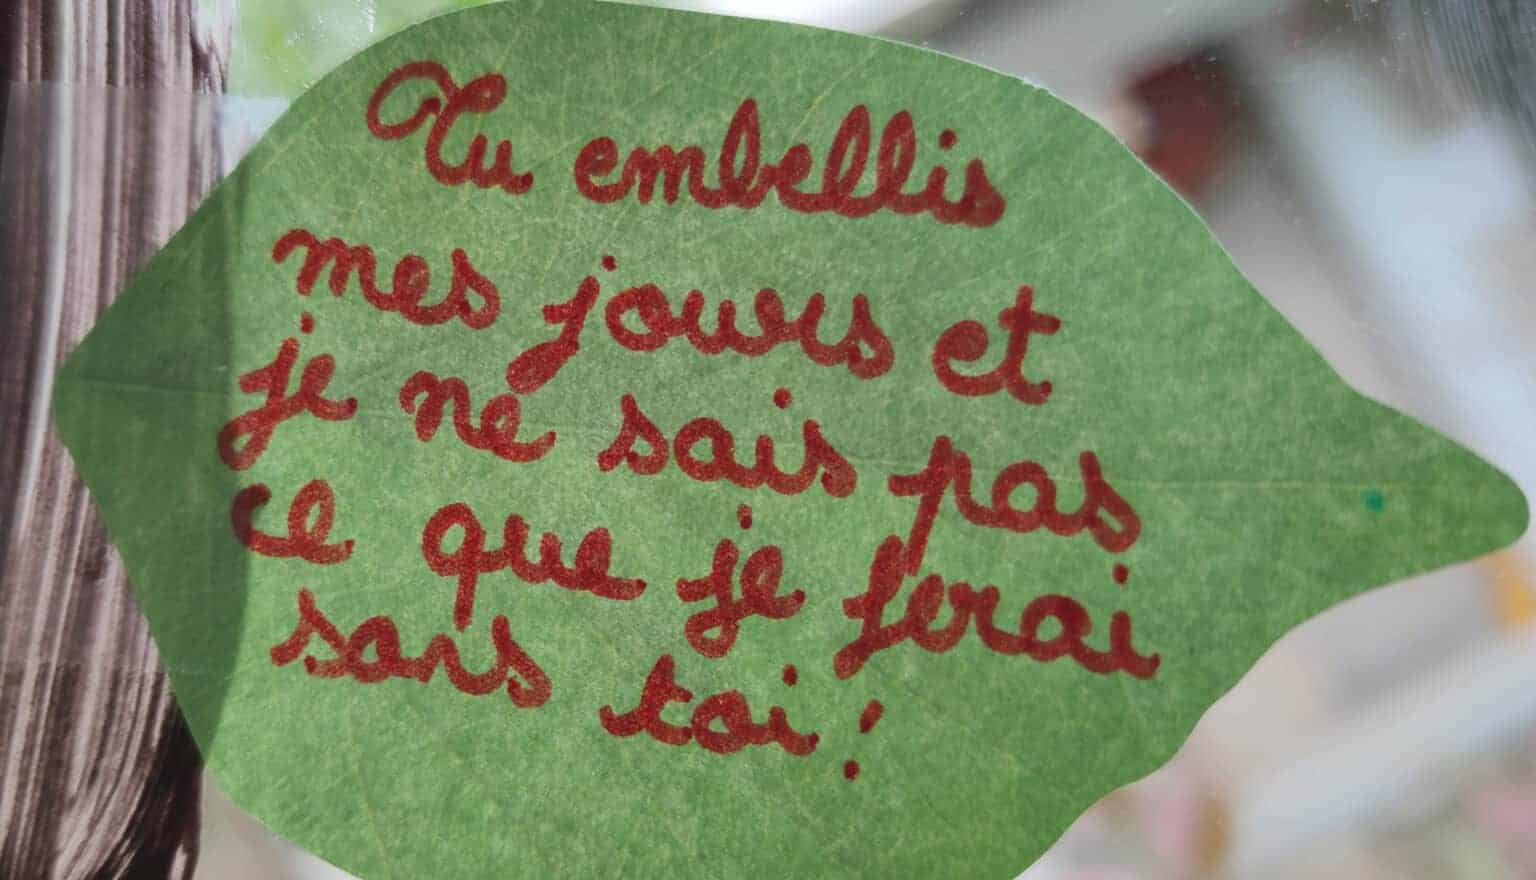 Tu embellis
mes jours et
je ne sais pas
ce que je ferai
sans toi !